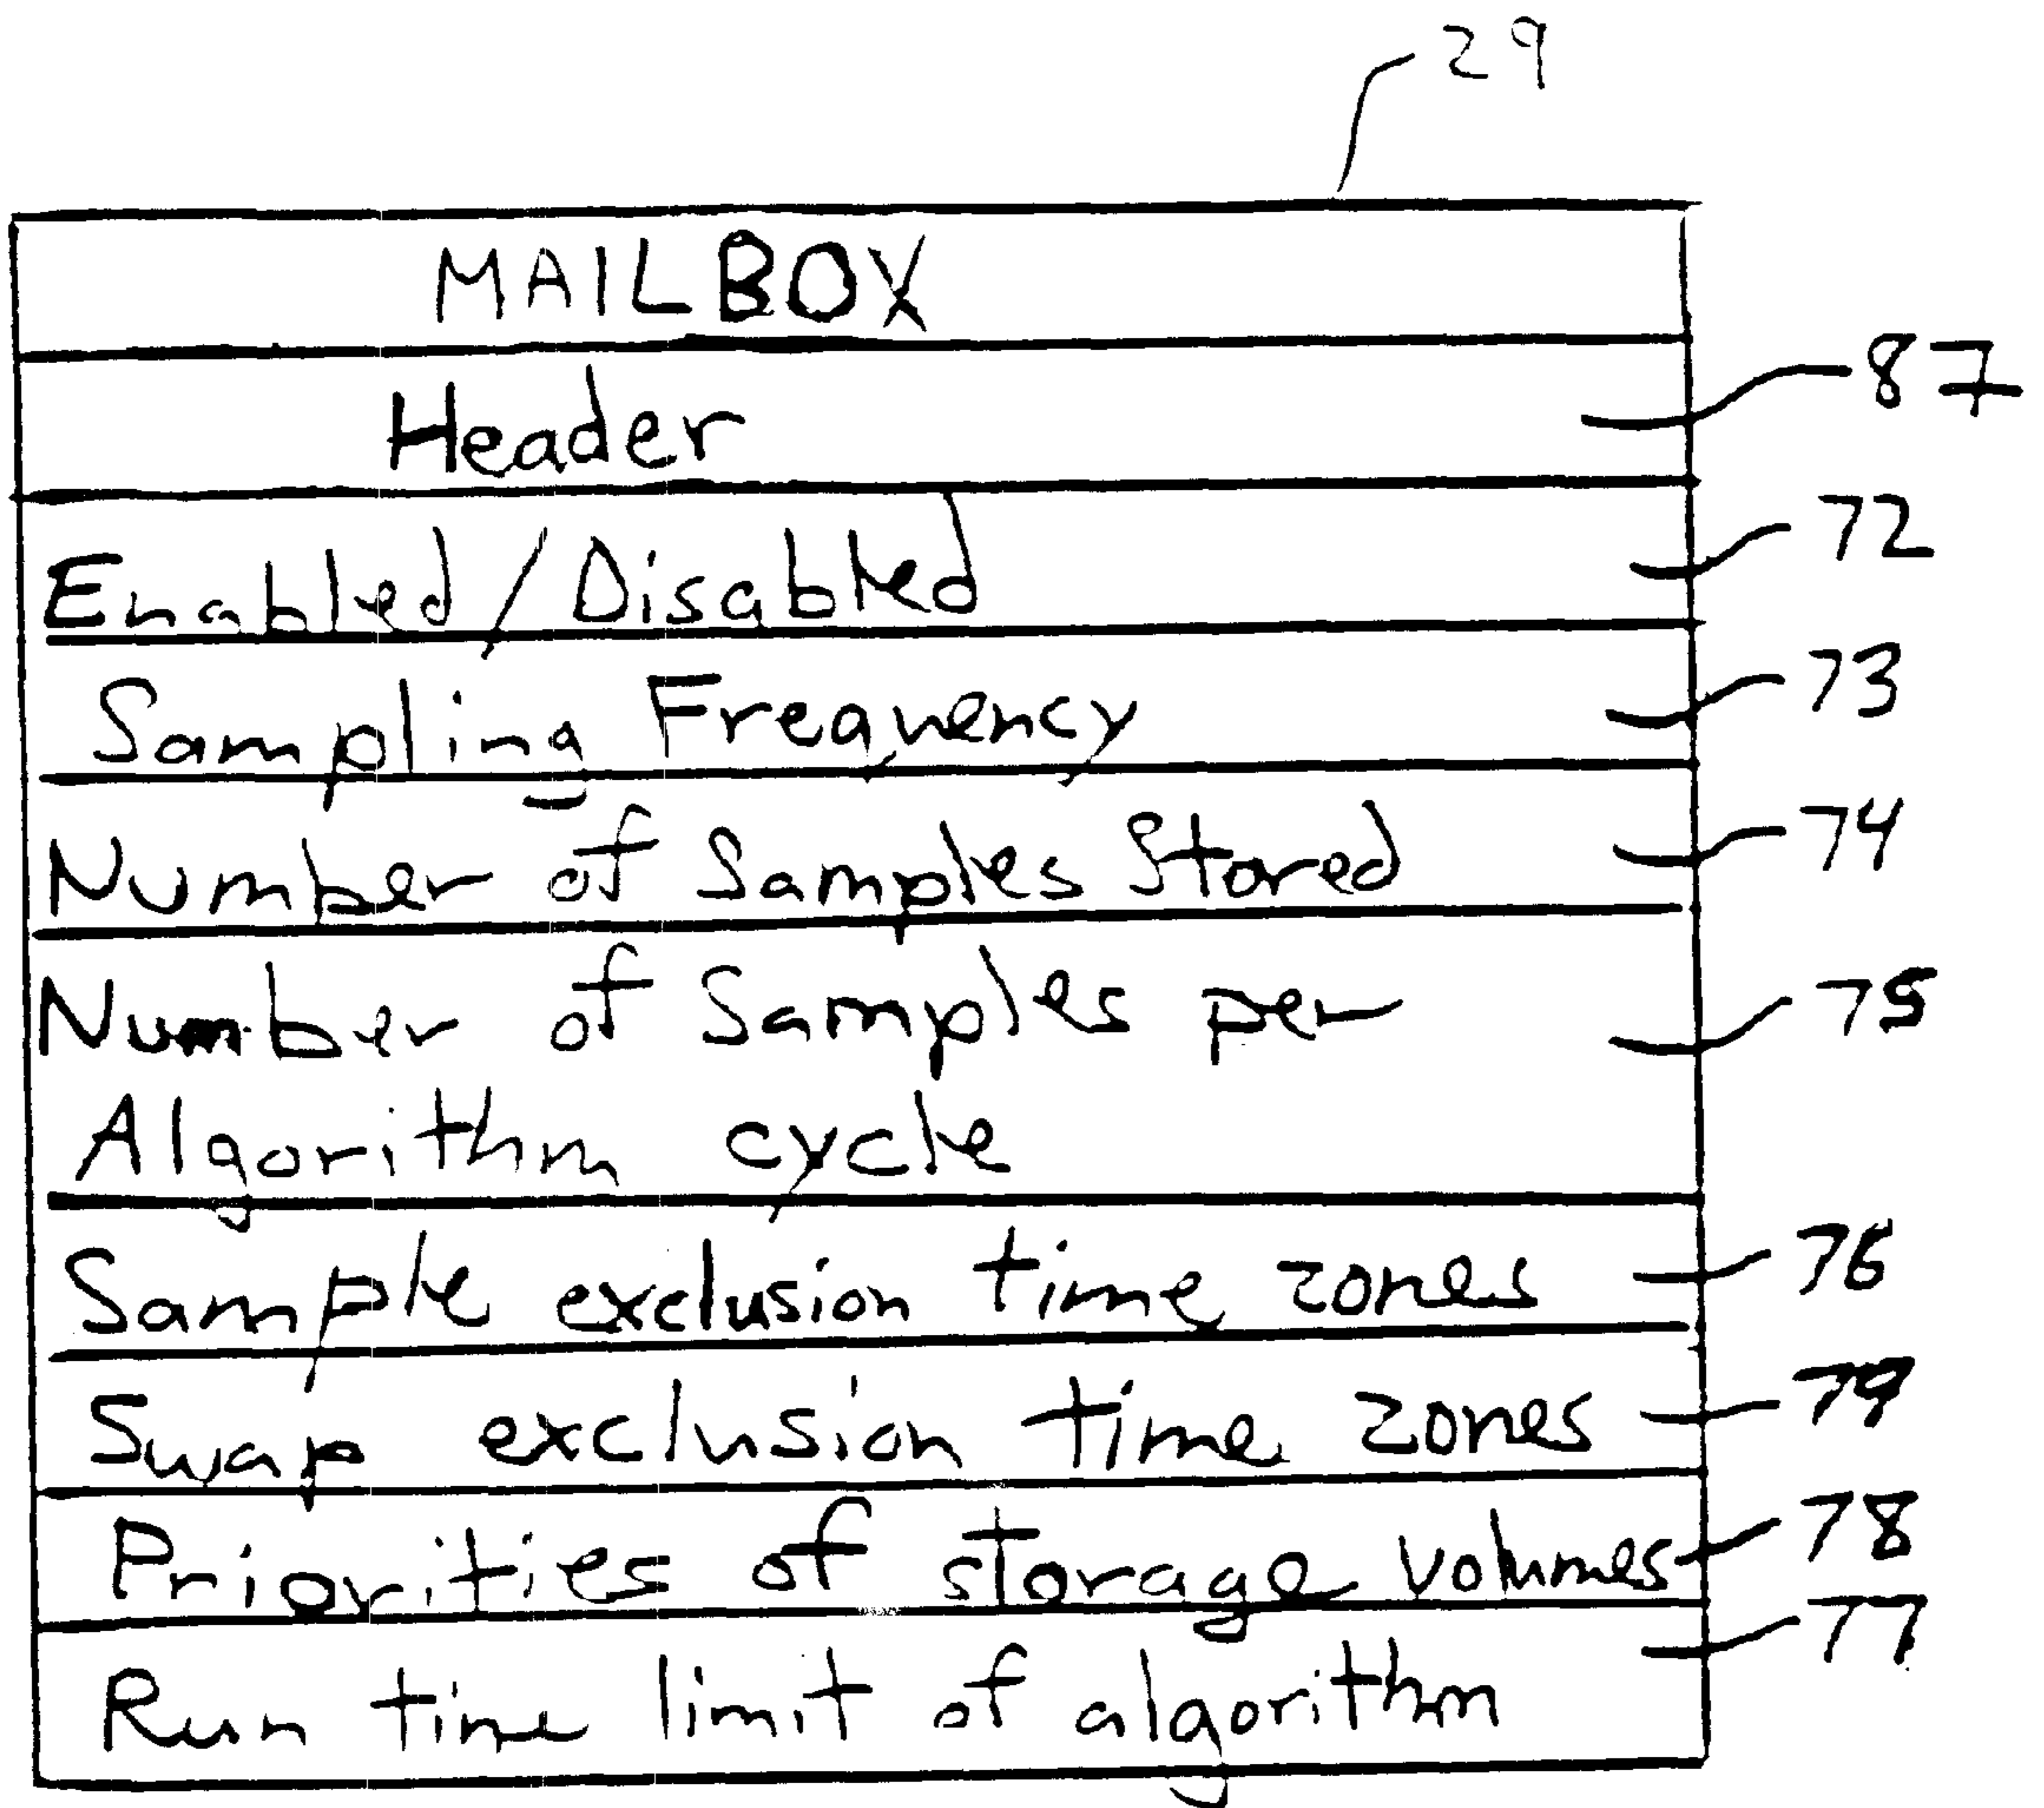 29
MAILBOX
Header 87
Enabled/Disabled 72
Sampling Frequency 73
Number of Samples Stored 74
Number of Samples per 75
Algorithm cycle
Sample exclusion time zones 76
Swap exclusion time zones 79
Priorities of storage volumes 78
Run time limit of algorithm 77